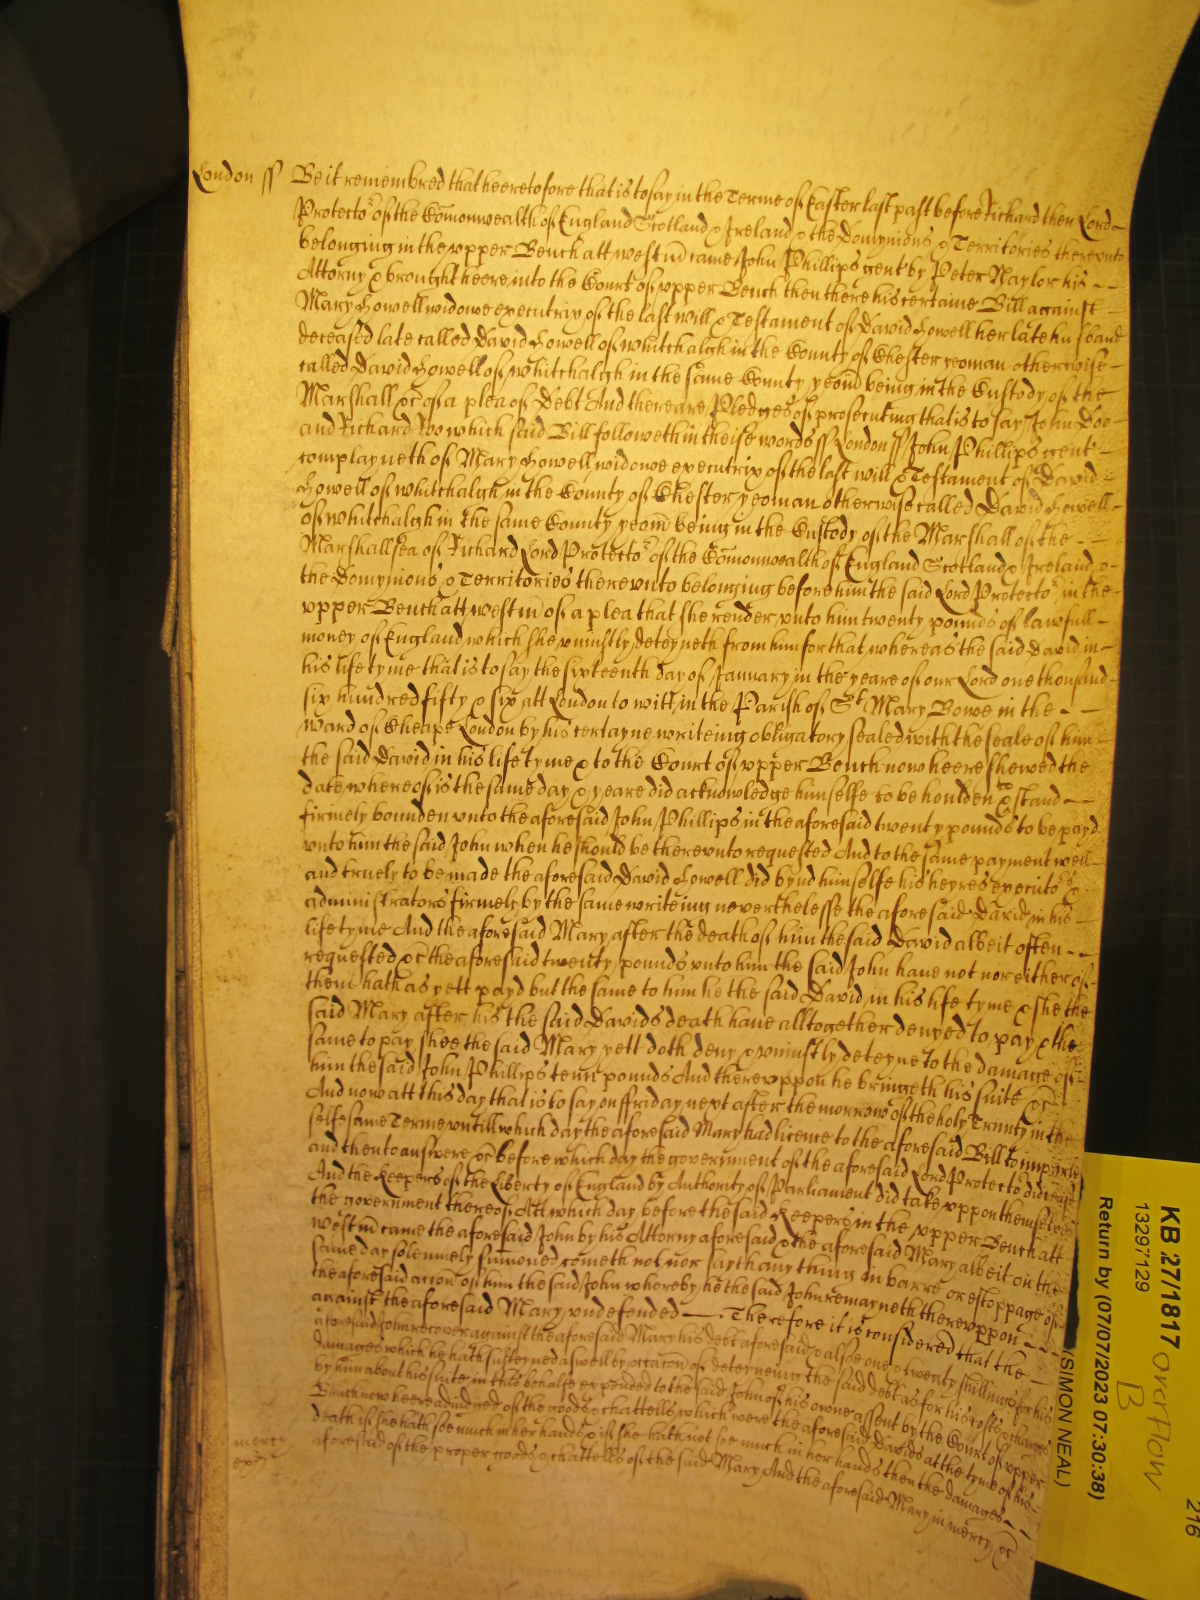 London ss Be it remembred that heeretofore that is to say in the Terme of Easter last past before Richard then Lord
Protector of the Comonwealth of England Scotland & Ireland & the Dominions & Territories therevnto
belonging in the vpper Bench att westm came John Phillips gent by Peter Naylor his
Attorny & brought heere into the Court of vpper Bench then there his certaine Bill against
Mary Howell widowe executrix of the last will & Testament of David Howell her late husband
deceased late called David Howell of whitchalgh in the County of Chester yeoman otherwise
called David Howell of whitchalgh in the same County yeom being in the Custody of the
Marshall &c of a plea of Debt And there are Pledges of prosecuting that is to say John Doe
and Richard Roo which said Bill followeth in theise words ss London ss John Phillips gent
complayneth of Mary Howell widowe executrix of the last will & Testament of David
Howell of whitchalgh in the County of Chester yeoman otherwise called David Howell
of whitchalgh in the same County yeom being in the Custody of the Marshall of the
Marshallsea of Richard Lord Protector of the Comonwealth of England Scotland & Ireland &
the Dominions & Territories therevnto belonging before him the said Lord Protector in the
vpper Bench att westm of a plea that she render vnto him twenty pounds of lawfull
money of England which she vniustly deteyneth from him for that whereas the said David in
his life tyme that is to say the sixteenth day of January in the yeare of our Lord one thousand
six hundred fifty & six att London to witt in the Parish of St Mary Bowe in the
ward of Cheape London by his certayne writeing obligatory sealed with the seale of him
the said David in his life tyme & to the Court of vpper Bench now heere shewed the
date whereof is the same day & yeare did acknowledge himselfe to be houlden & to stand
firmely bounden vnto the aforesaid John Phillips in the aforesaid twenty pounds to be payd
vnto him the said John when he should be therevnto requested And to the same payment well
and truely to be made the aforesaid David Howell did bynd himselfe his heyres executors &
administrators firmely by the same writeing neverthelesse the aforesaid David in his
life tyme And the aforesaid Mary after the death of him the said David albeit often
requested &c the aforesaid twenty pounds vnto him the said John haue not nor either of
them hath as yett payd but the same to him he the said David in his life tyme & she the
said Mary after his the said Davids death haue alltogether denyed to pay & the
same to pay shee the said Mary yett doth deny & vniustly deteyne to the damage of
him the said John Phillips tenn pounds And therevppon he bringeth his suite &c
And now att this day that is to say on ffriday next after the morrow of the holy Trinity in the
selfe same Terme vntill which day the aforesaid Mary had licence to the aforesaid Bill to imparle
and then to answere &c before which day the government of the aforesaid Lord Protector did cease
And the Keepers of the Liberty of England by Authority of Parliament did take vppon themselves
the government thereof Att which day before the said Keepers in the vpper Bench att
westm came the aforesaid John by his Attorny aforesaid & the aforesaid Mary albeit on the
same day solemnely summoned cometh not nor sayth any thing in barre or estoppage of
the aforesaid accon of him the said John whereby he the said John remayneth therevppon
against the aforesaid Mary vndefended Therefore it is considered that the
aforesaid John recover against the aforesaid Mary his debt aforesaid & alsoe one & twenty shillings for his
damages which he hath susteyned aswell by occacon of deteyneing the said debt as for his costs & charges
by him about his suite in this behalfe expended to the said John of his owne assent by the Court of vpper
Bench now heere adiudged of the goods & chattells which were the aforesaid Davids at the tyme of his
death if she hath soe much in her hands & if she hath not soe much in her hands then the damages
mercy aforesaid of the proper goods & chattells of the said Mary And the aforesaid Mary in mercy &c
KB 27/1817
13297129
Return by (07/07/2023 07:30:38)
SIMON NEAL)
Overflow
B
216